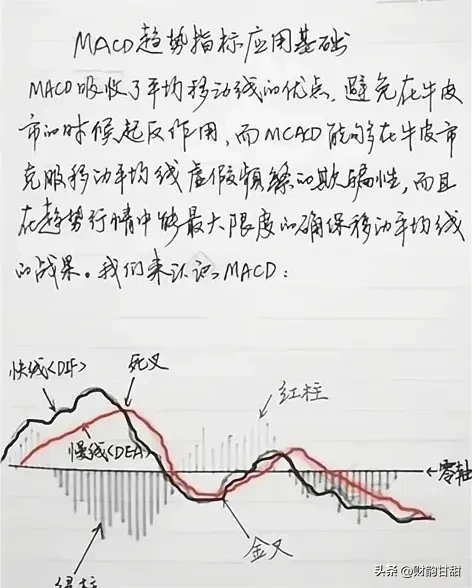 MACD趋势指标应用基础
MACD吸收了平均移动线的优点,避免在牛皮
市的时候起反作用,而MCACD能够在牛皮市
克服移动平均线虚假频繁的欺骗性,而且
在趋势行情中够最大限度的确保移动平均线
的战果。我们来认识MACD:
快线<DIF>
死叉
红柱
慢线<DEA>
零轴
金叉
绿柱
头条 @财韵甘甜